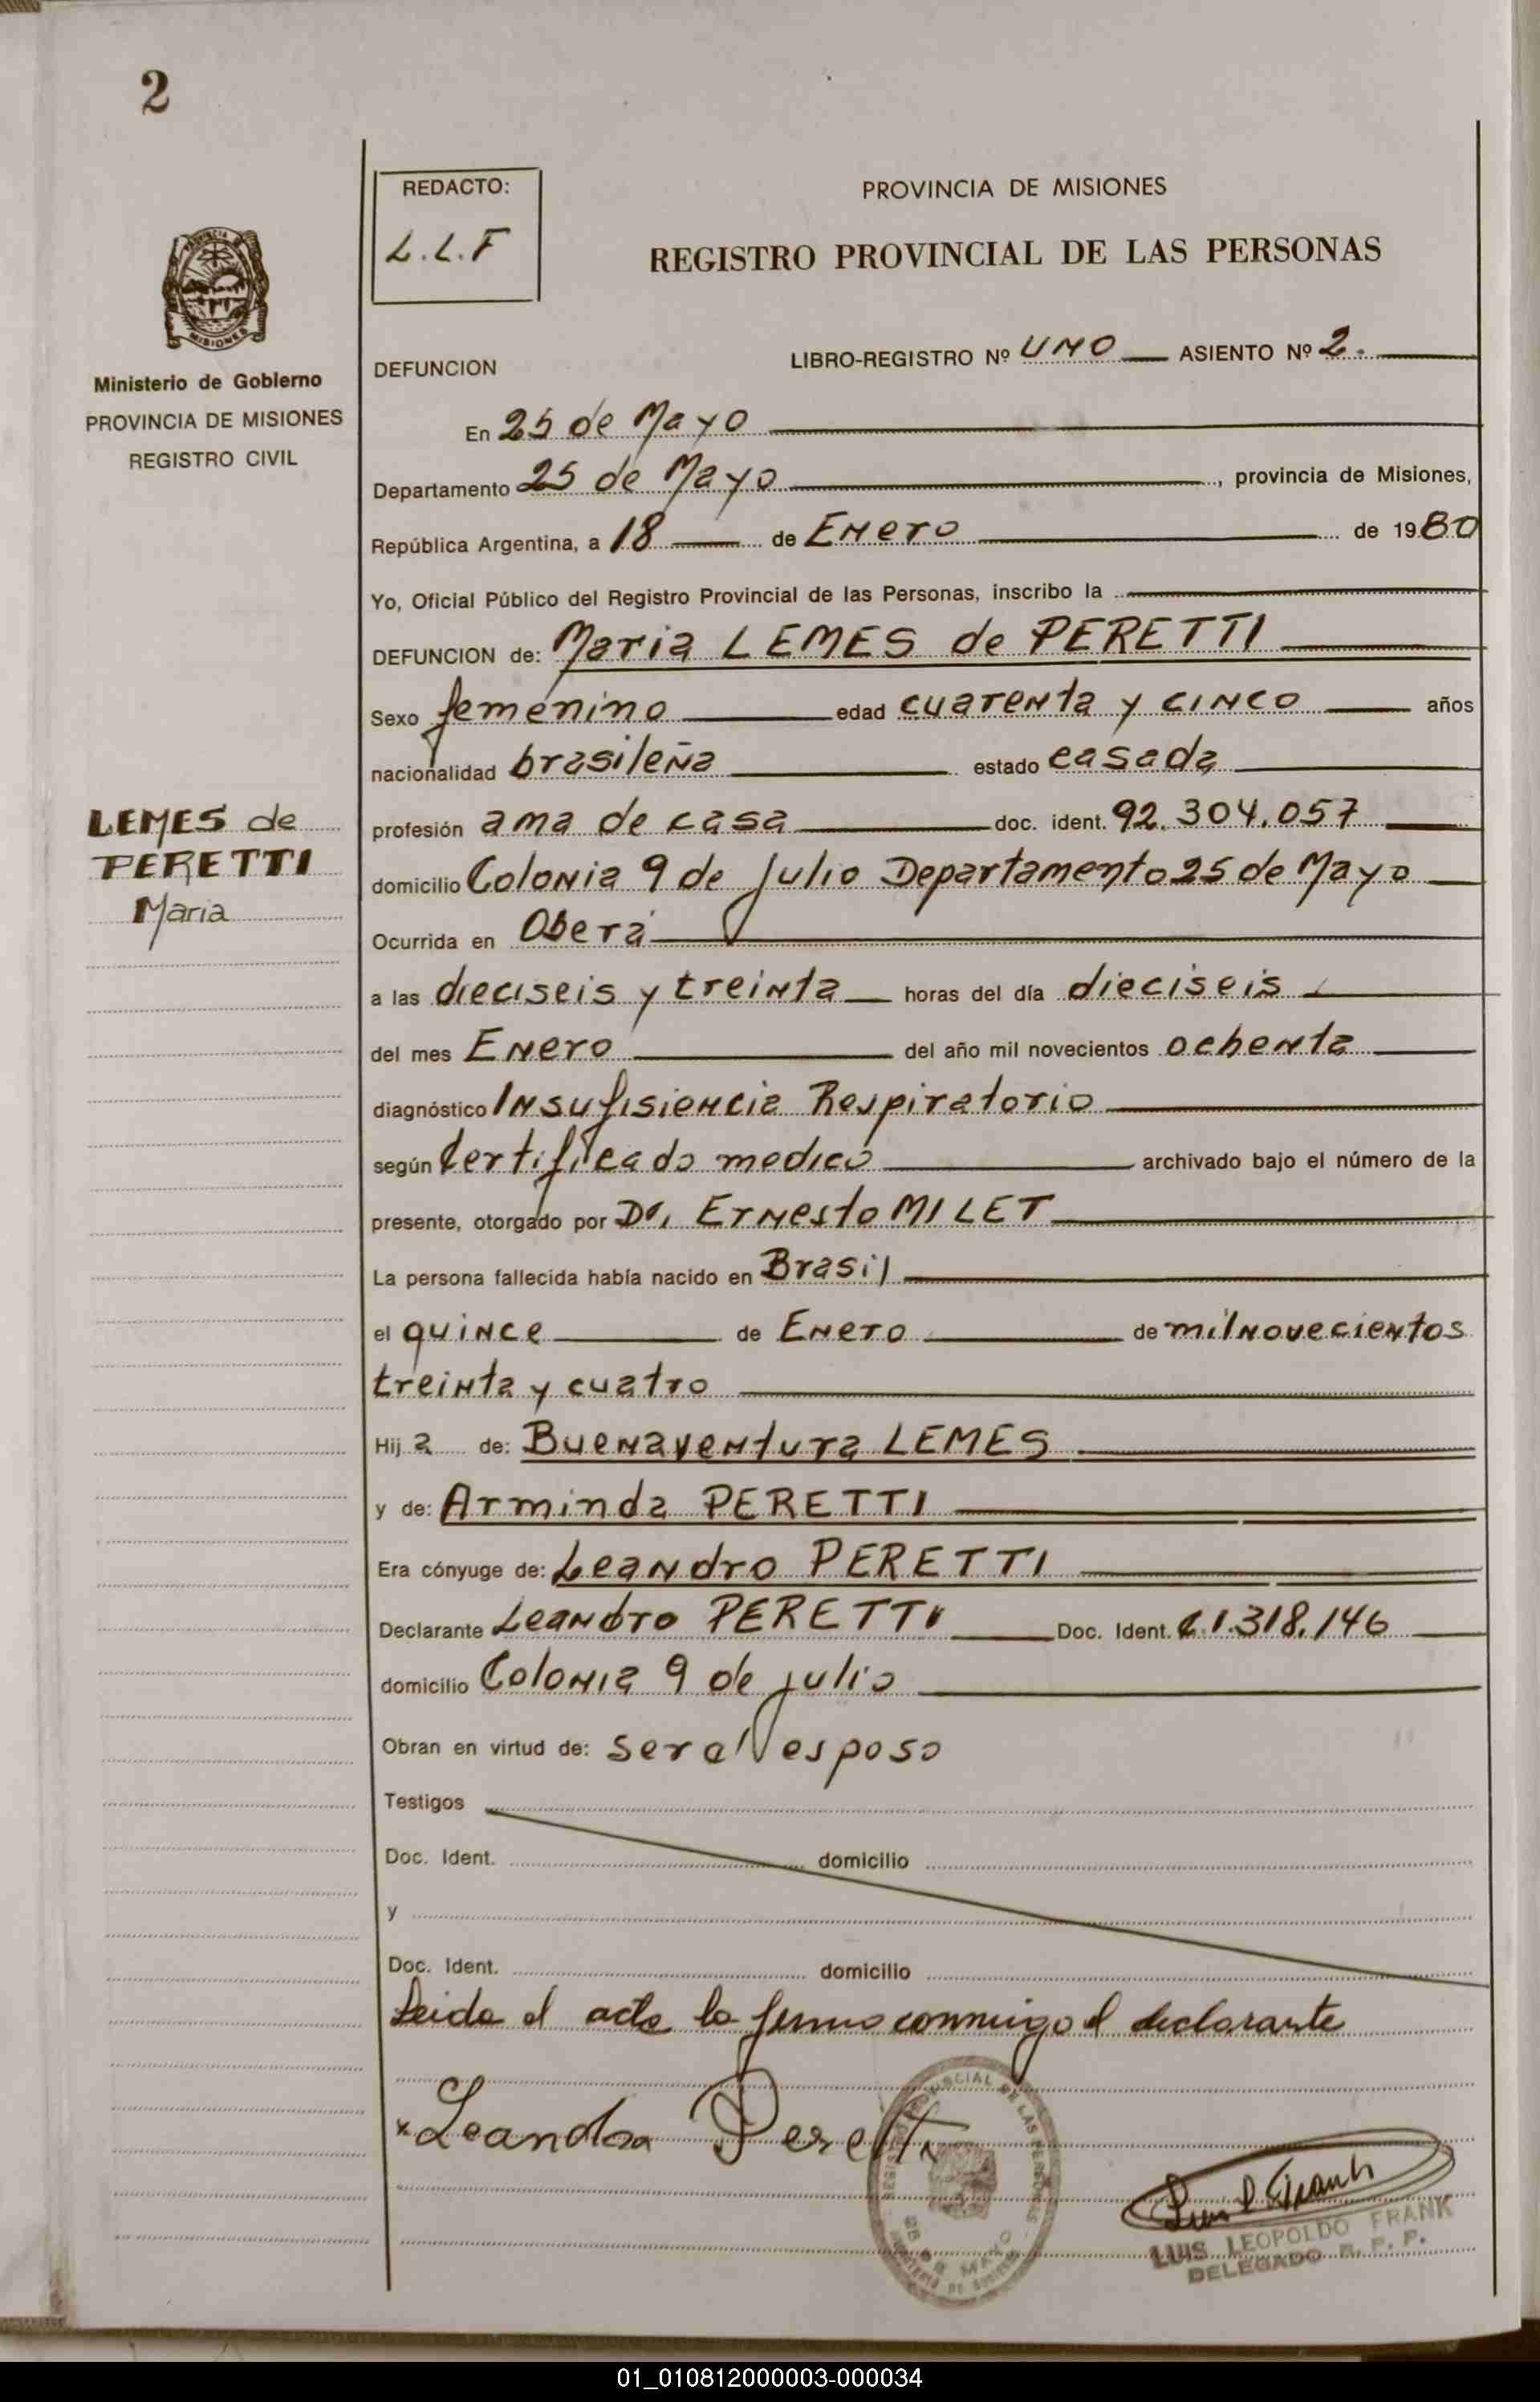 2
REDACTO:
L.L.F
PROVINCIA DE MISIONES
REGISTRO PROVINCIAL DE LAS PERSONAS
MISIONES
Ministerio de Gobierno
PROVINCIA DE MISIONES
REGISTRO CIVIL
DEFUNCION
LIBRO-REGISTRO Nº UNO ASIENTO Nº 2.
En 25 de Mayo
Departamento 25 de Mayo, provincia de Misiones,
República Argentina, a 18 de Enero de 1980
Yo, Oficial Público del Registro Provincial de las Personas, inscribo la
DEFUNCION de: Maria LEMES de PERETTI
Sexo femenino edad cuarenta y cinco años
nacionalidad brasileña estado casada
LEMES de
PERETTI
Maria
profesión ama de casa doc. ident. 92.304.057
domicilio Colonia 9 de Julio Departamento 25 de Mayo
Ocurrida en Oberá
a las dieciseis y treinta horas del día dieciseis
del mes Enero del año mil novecientos ochenta
diagnóstico Insufisiencia Respiratorio
según Certificado medico archivado bajo el número de la
presente, otorgado por Dr. Ernesto MILET
La persona fallecida había nacido en Brasil
el quince de Enero de milnovecientos
treinta y cuatro
Hija de: Buenaventura LEMES
y de: Arminda PERETTI
Era cónyuge de: Leandro PERETTI
Declarante Leandro PERETTI Doc. Ident. 1.318.146
domicilio Colonia 9 de julio
Obran en virtud de: ser el esposo
Testigos
Doc. Ident. domicilio
y
Doc. Ident. domicilio
Leida el acta la firma conmigo el declarante
x Leandro Peretti
LUIS LEOPOLDO FRANK
DELEGADO R. P. P.
01_010812000003-000034